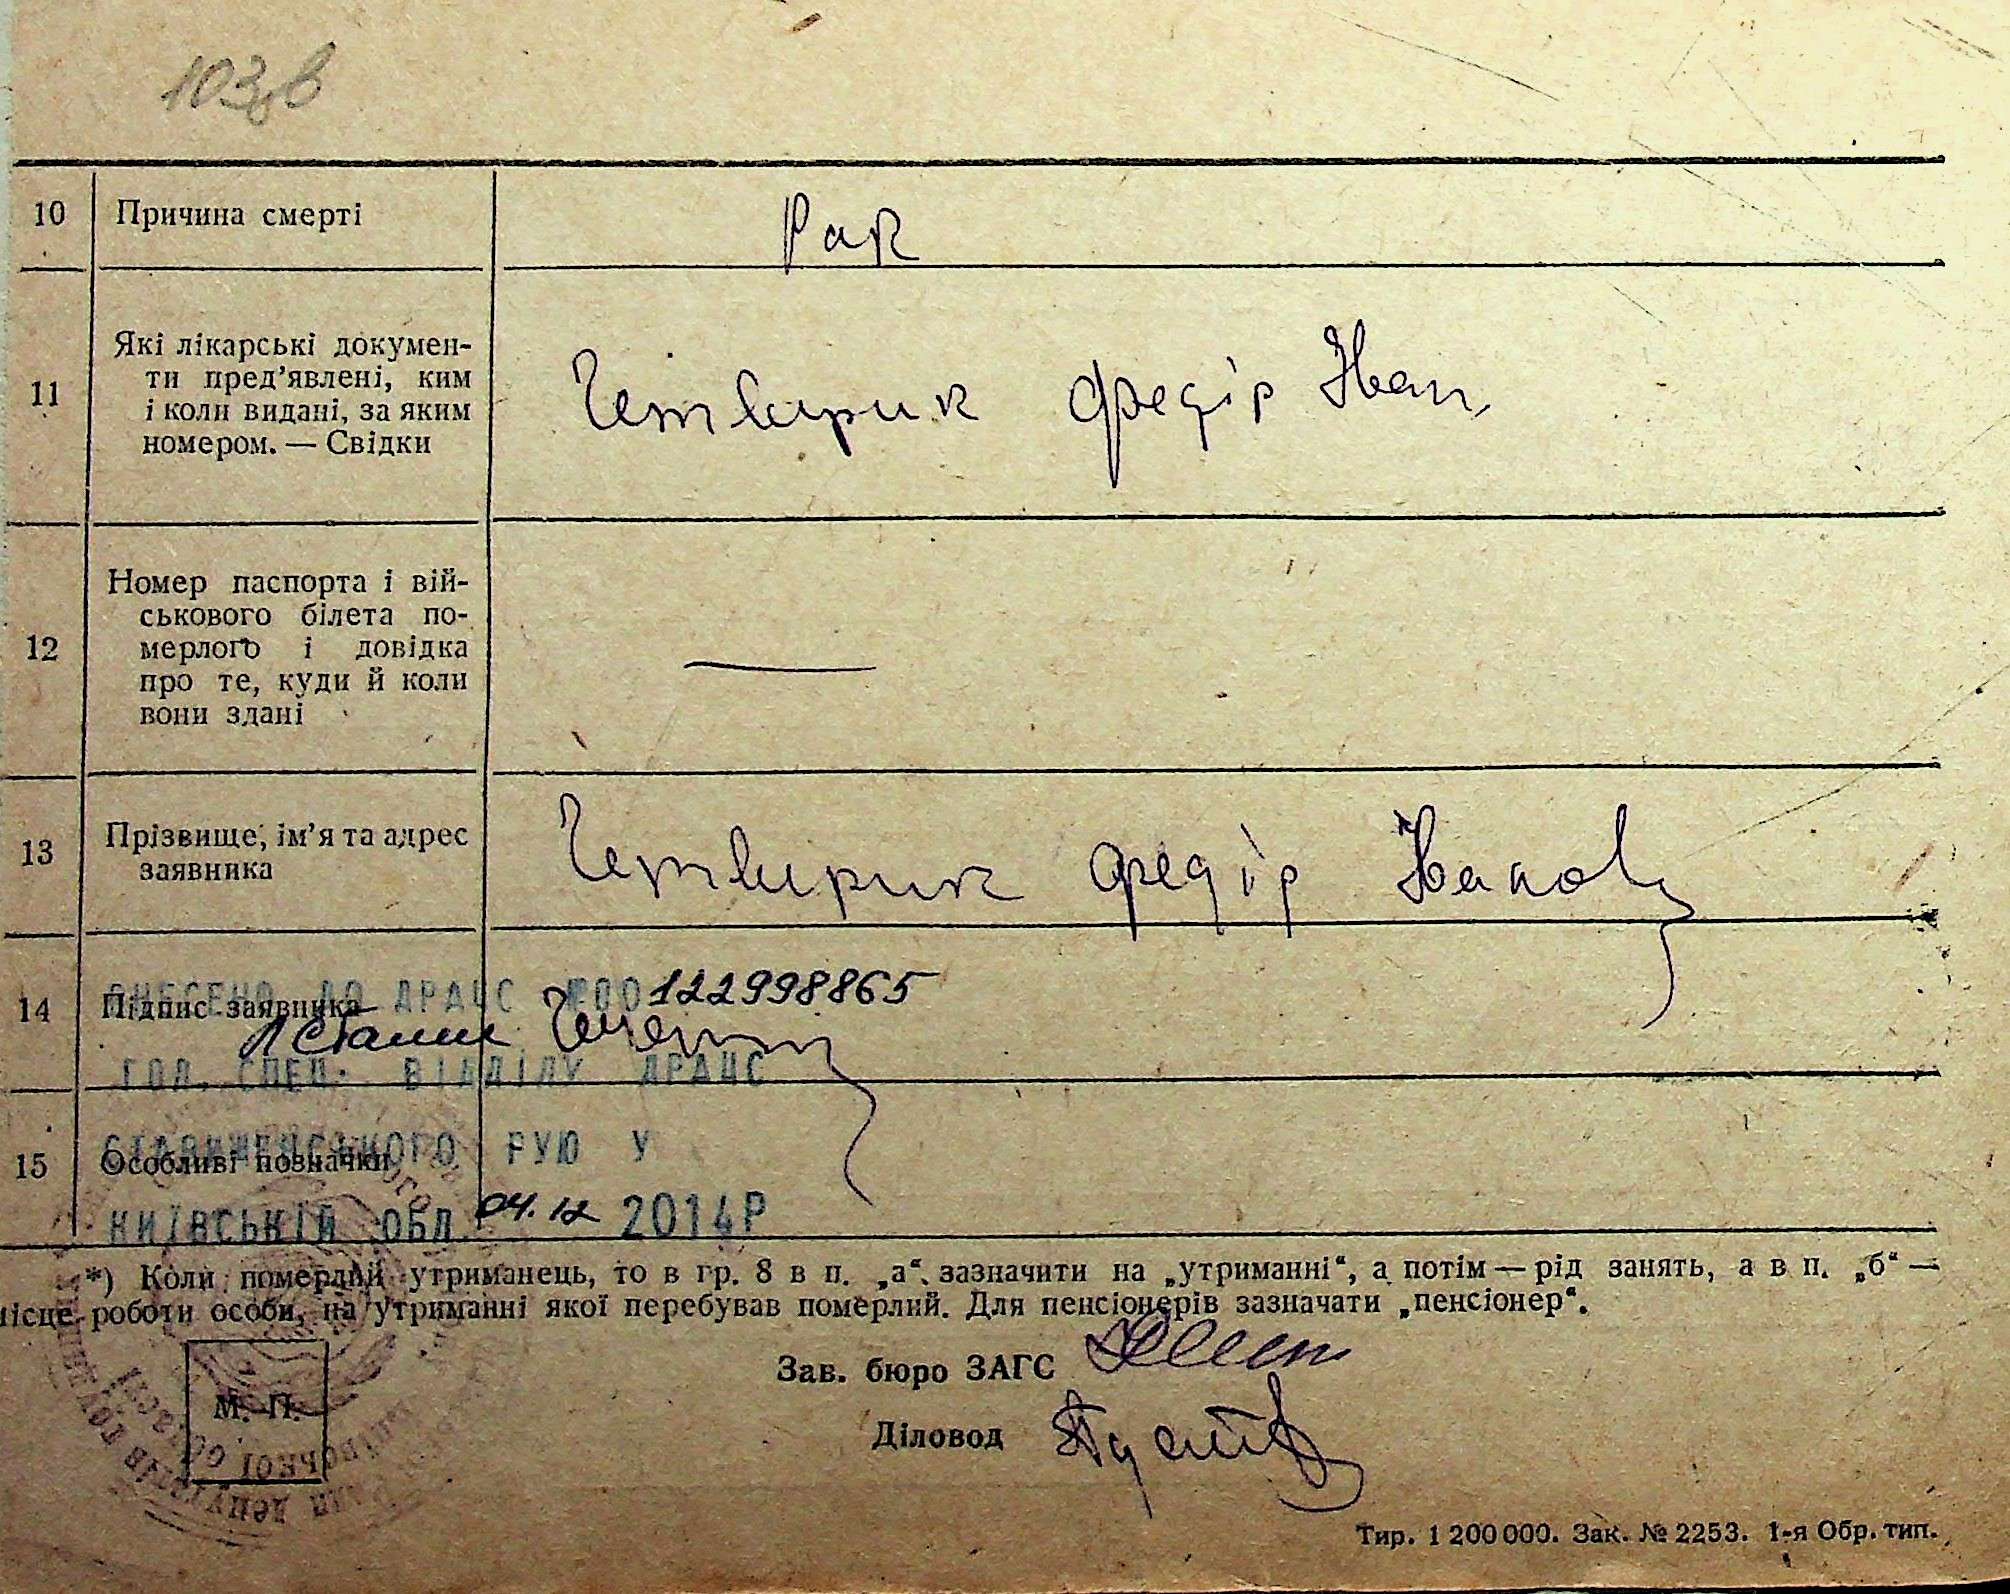 103зв
10
Причина смерті
Рак
11
Які лікарські докумен-
ти пред’явлені, ким
і коли видані, за яким
номером. — Свідки
Четверик Федір Іван.
12
Номер паспорта і вій-
ськового білета по-
мерлого і довідка
про те, куди й коли
вони здані
—
13
Прізвище, ім’я та адрес
заявника
Четверик Федір Іванов
14
Підпис заявника
ВНЕСЕНО ДО ДРАЦС №00122998865
ГОЛ. СПЕЦ. ВІДДІЛУ ДРАЦС
15
Особливі позначки
СТАВИЩЕНСЬКОГО РУЮ У
КИЇВСЬКІЙ ОБЛ. 04.12 2014Р
*) Коли померлий утриманець, то в гр. 8 в п. „а“ зазначити на „утриманні“, а потім — рід занять, а в п. „б“ —
місце роботи особи, на утриманні якої перебував померлий. Для пенсіонерів зазначати „пенсіонер“.
Зав. бюро ЗАГС
М. П.
Діловод
Тир. 1 200 000. Зак. № 2253. 1-я Обр. тип.